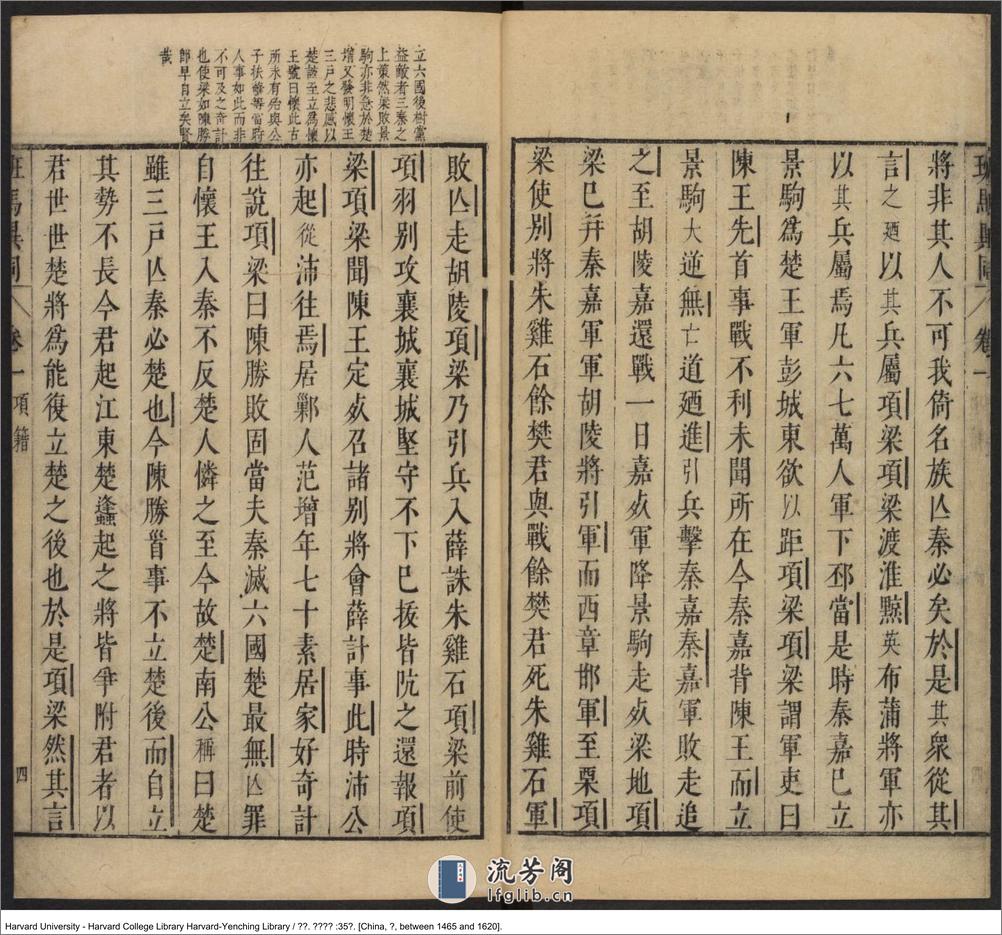 班馬異同 卷一
將非其人不可我倚名族亾秦必矣於是其衆從其
言之廼以其兵屬項梁項梁渡淮黥英布蒲將軍亦
以其兵屬焉凡六七萬人軍下邳當是時秦嘉已立
景駒爲楚王軍彭城東欲以距項梁項梁謂軍吏曰
陳王先首事戰不利未聞所在今秦嘉背陳王而立
景駒大逆無亡道廼進引兵擊秦嘉秦嘉軍敗走追
之至胡陵嘉還戰一日嘉死軍降景駒走死梁地項
梁已幷秦嘉軍軍胡陵將引軍而西章邯軍至栗項
梁使别將朱雞石餘樊君與戰餘樊君死朱雞石軍
敗亾走胡陵項梁乃引兵入薛誅朱雞石項梁前使
項羽别攻襄城襄城堅守不下已拔皆阬之還報項
梁項梁聞陳王定死召諸别將會薛計事此時沛公
亦起從沛往焉居鄛人范增年七十素居家好奇計
往說項梁曰陳勝敗固當夫秦滅六國楚最無亾罪
自懷王入秦不反楚人憐之至今故楚南公稱曰楚
雖三戸亾秦必楚也今陳勝首事不立楚後而自立
其勢不長今君起江東楚蠭起之將皆爭附君者以
君世世楚將爲能復立楚之後也於是項梁然其言
班馬異同 卷一 項籍 四
立六國後樹黨
益敵者三秦之
上策然梁敗景
駒亦非急於楚
增又發明懷王
三戸之悲感以
楚該至立爲懷
王號曰懷此古
所未有殆與公
子扶蘇等當時
人事如此而非
不可及之奇計
也使梁如陳勝
即早自立矣賢
哉
流芳阁
lfglib.cn
Harvard University - Harvard College Library Harvard-Yenching Library / ??. ???? :35?. [China, ?, between 1465 and 1620].